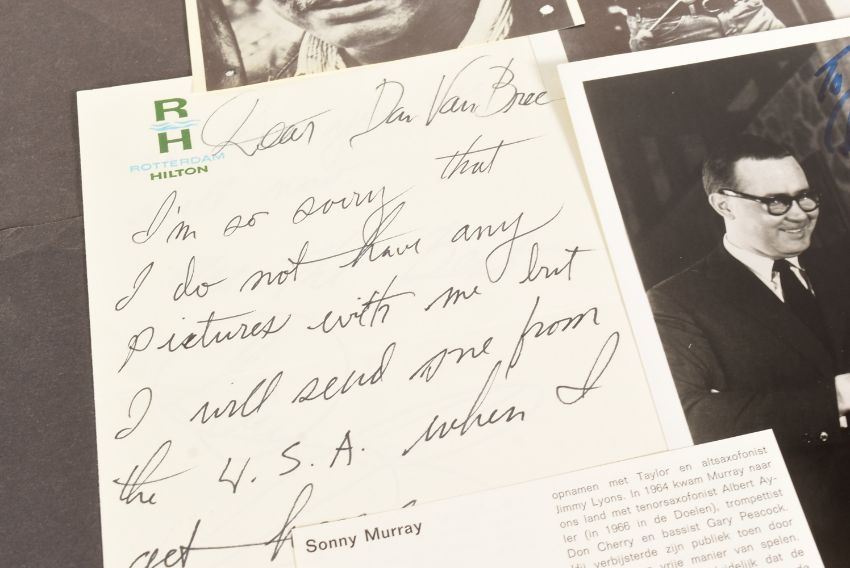 R
H
ROTTERDAM
HILTON
Dear Dan Van Bree
I'm so sorry that
I do not have any
pictures with me but
I will send one from
the U.S.A. when I
get
Sonny Murray
opnamen met Taylor en altsaxofonist
Jimmy Lyons. In 1964 kwam Murray naar
ons land met tenorsaxofonist Albert Ay-
ler (in 1966 in de Doelen), trompettist
Don Cherry en bassist Gary Peacock.
verbijsterde zijn publiek toen door
vrije manier van spelen.
dat de
To